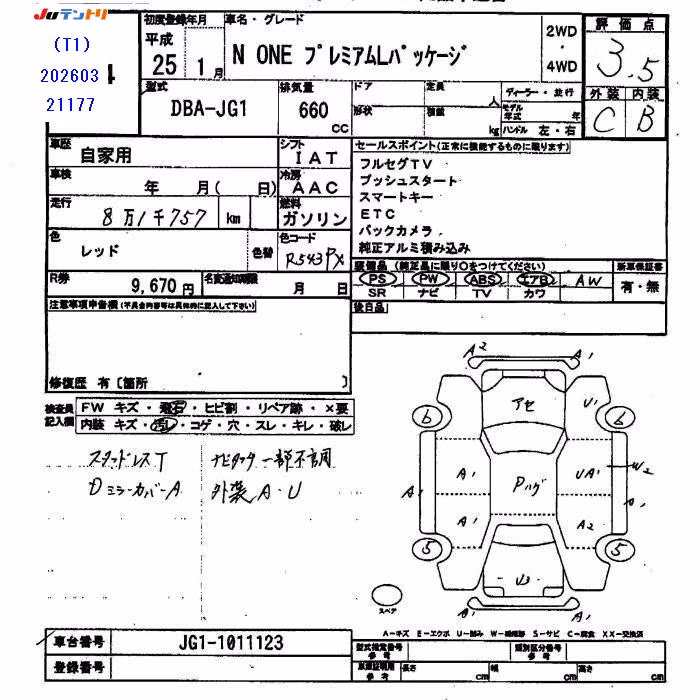 JUテントリ
(T1)
202603
21177
初度登録年月
平成
25 1月
車名・グレード
N ONE プレミアムLパッケージ
2WD
・
4WD
評価点
3.5
外装 内装
C B
型式
DBA-JG1
排気量
660
CC
ドア
形状
定員
人
積載
kg
ディーラー・並行
モデル年式 年
ハンドル 左・右
車歴
自家用
シフト
IAT
車検
年 月( 日)
冷房
AAC
走行
8万1千757 km
燃料
ガソリン
色
レッド
色替
色コード
R543PX
R券
9,670円
名変通知期限
月 日
セールスポイント(正常に機能するものに限ります)
フルセグTV
プッシュスタート
スマートキー
ETC
バックカメラ
純正アルミ積み込み
装備品 (純正品に限り○をつけてください)
PS PW ABS エアB AW
SR ナビ TV カワ
新車保証書
有・無
後日品
注意事項申告欄(不具合内容等は具体的に記入して下さい)
修復歴 有〔箇所 〕
検査員
記入欄
FW キズ・飛石・ヒビ割・リペア跡・×要
内装 キズ・汚レ・コゲ・穴・スレ・キレ・破レ
スタッドレスT
Dミラーカバー A
ナビタッチ一部不良
外装 A・U
A2 A1
アセ
U1
6 6
A1 A1 Pハグ UA1 W2
A1 A2 A1
5 5
U3
A1
スペア
A-キズ E-エクボ U-凹み W-補修跡 S-サビ C-腐食 XX-交換済
車台番号
JG1-1011123
登録番号
型式指定番号
参考
類別区分番号
参考
車庫証明用
参考
長さ cm
幅 cm
高さ cm